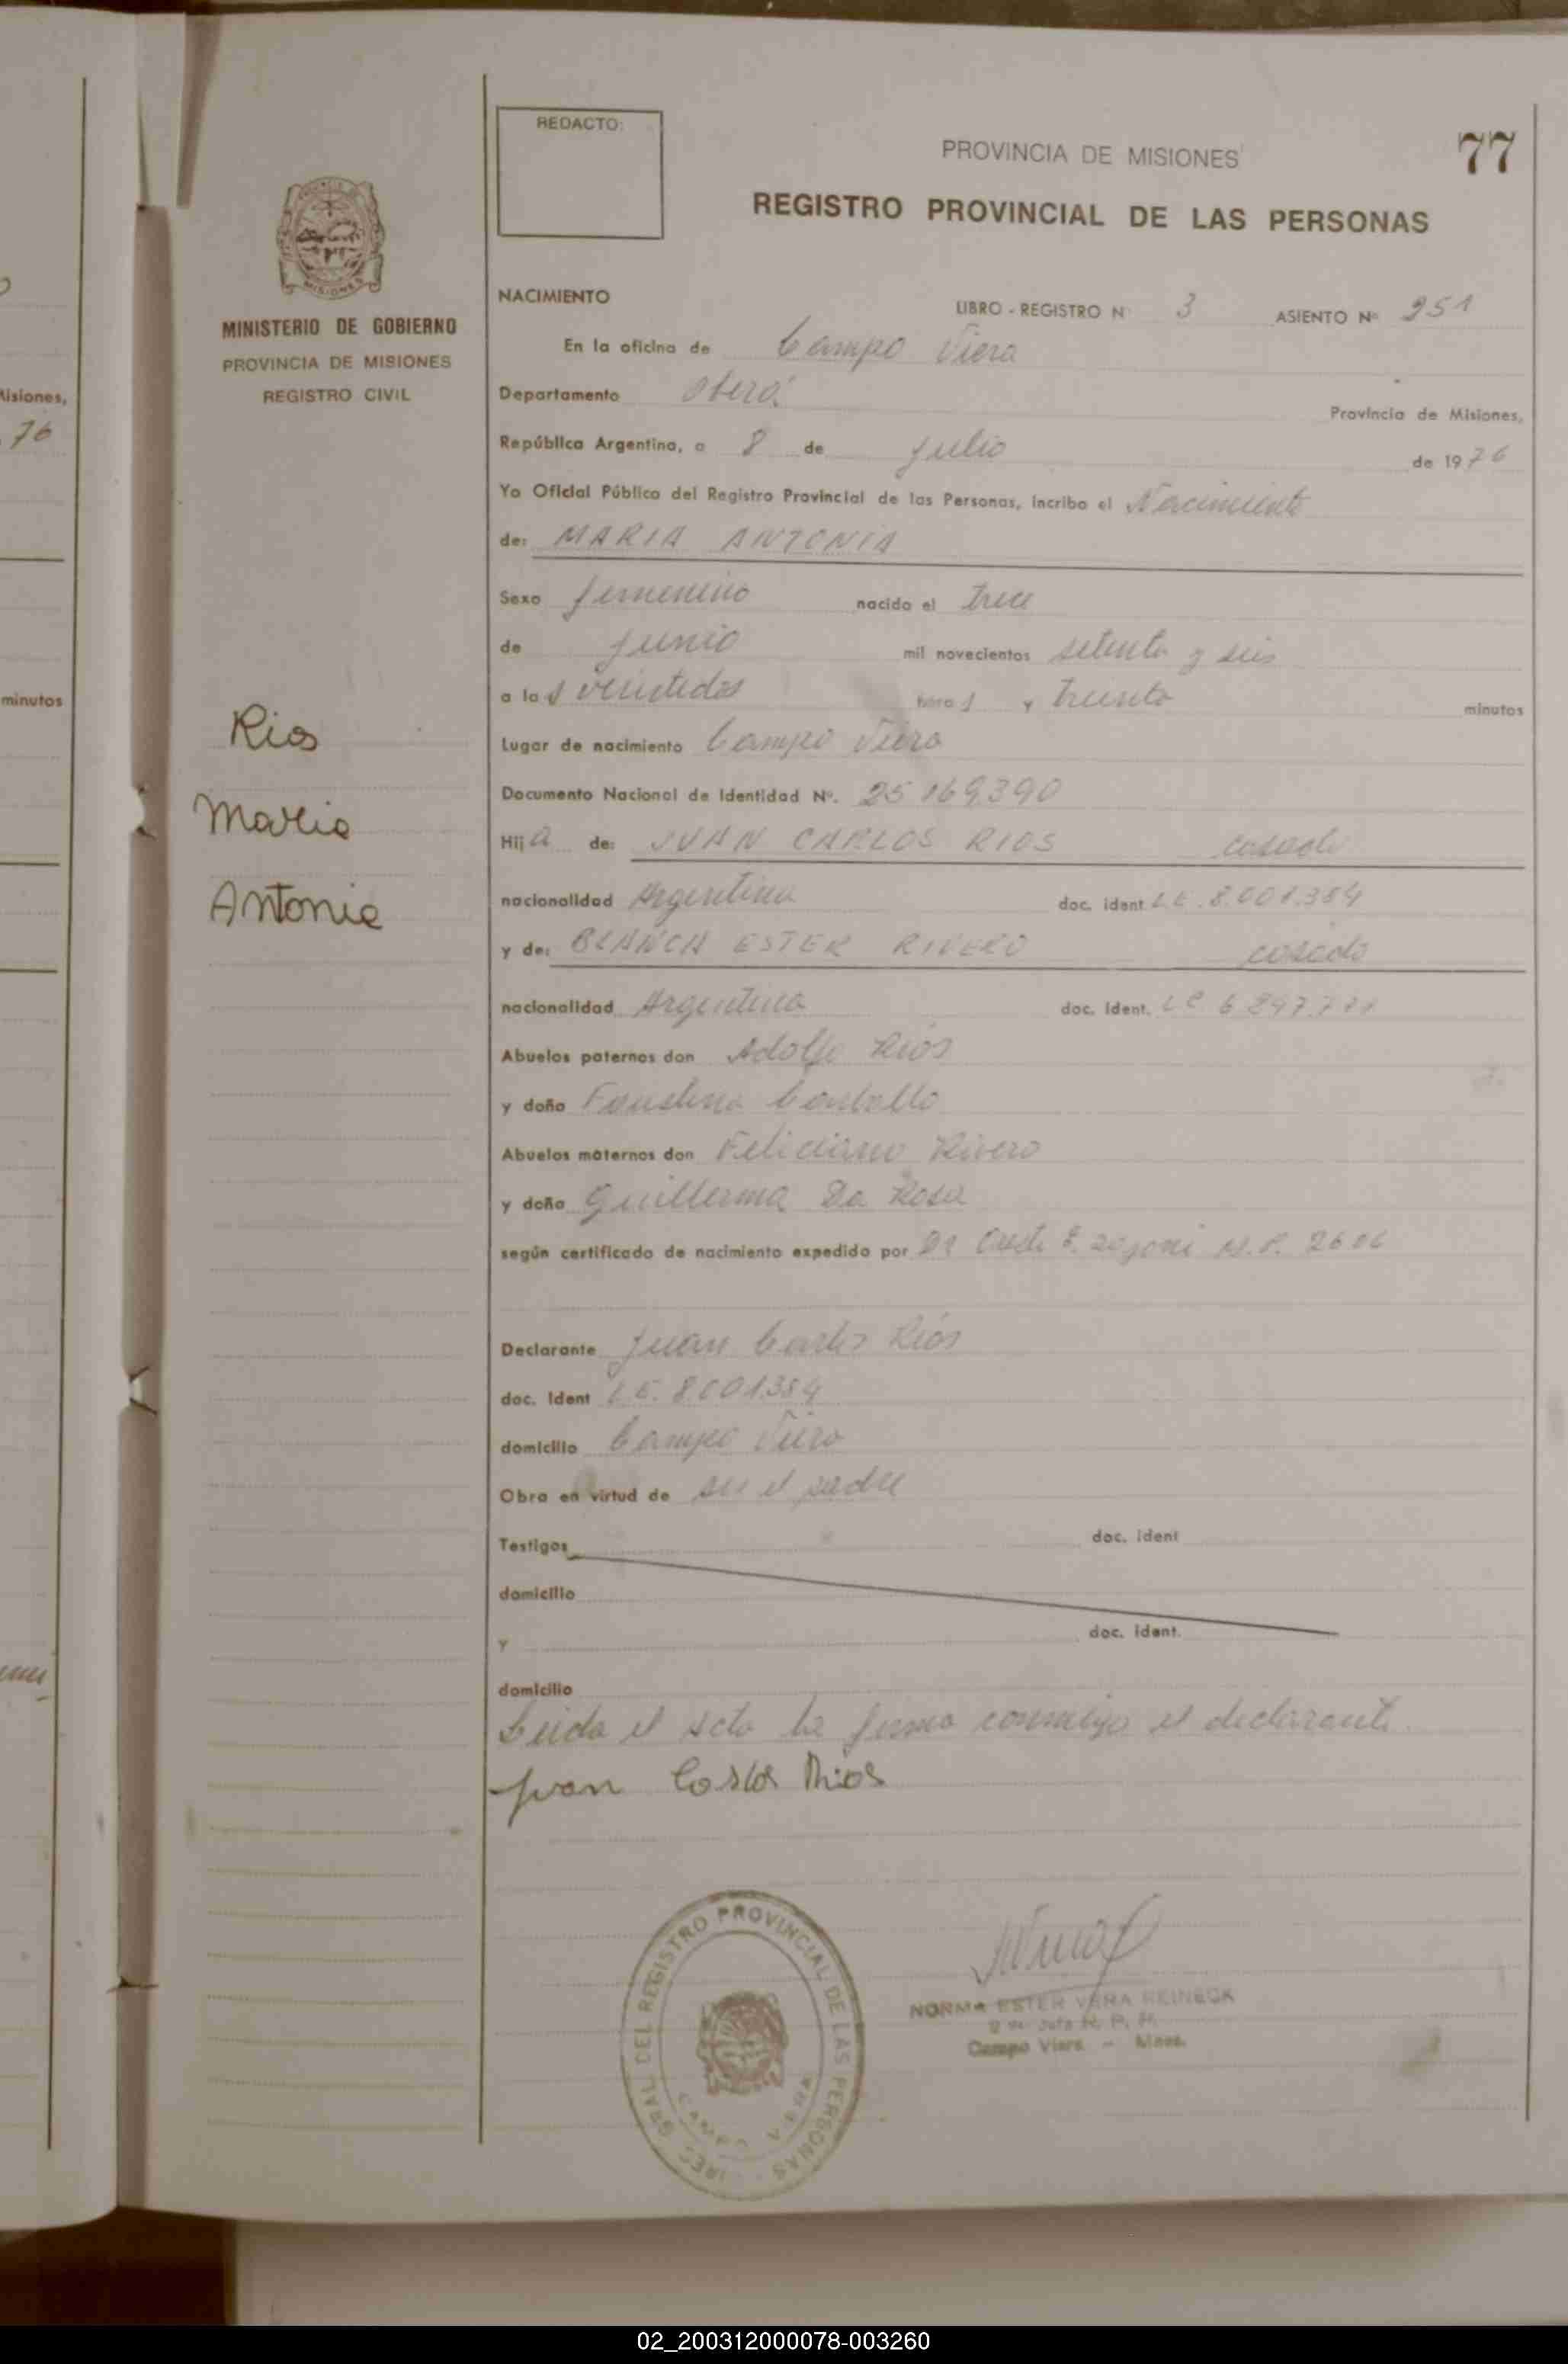 REDACTO:
PROVINCIA DE MISIONES
77
REGISTRO PROVINCIAL DE LAS PERSONAS
MISIONES
MINISTERIO DE GOBIERNO
PROVINCIA DE MISIONES
REGISTRO CIVIL
Misiones,
76
minutos
Rios
Maria
Antonia
NACIMIENTO
LIBRO - REGISTRO N° 3 ASIENTO N° 251
En la oficina de Campo Viera
Departamento Oberá Provincia de Misiones,
República Argentina, a 8 de Julio de 1976
Yo Oficial Público del Registro Provincial de las Personas, incribo el Nacimiento
de: MARIA ANTONIA
Sexo femenino nacido el trece
de Junio mil novecientos setenta y seis
a las veintidos horas y treinta minutos
Lugar de nacimiento Campo Viera
Documento Nacional de Identidad N°. 25.169.390
Hija de: JUAN CARLOS RIOS casado
nacionalidad Argentina doc. ident L.E. 8.001.384
y de: BLANCA ESTER RIVERO casada
nacionalidad Argentina doc. ident. LC
Abuelos paternos don Adolfo Rios
y doña Faustina
Abuelos maternos don Feliciano Rivero
y doña Guillerma Da Rosa
según certificado de nacimiento expedido por Dr M.P. 2606
Declarante Juan Carlos Rios
doc. ident L.E. 8.001.384
domicilio Campo Viera
Obra en virtud de ser el padre
Testigos doc. ident
domicilio
y doc. ident.
domicilio
Leida el acta la firma conmigo el declarante.
Juan Carlos Rios
REGISTRO PROVINCIAL DE LAS PERSONAS
CAMPO VIERA
NORMA ESTER VERA REINECK
Campo Viera - Mnes.
02_200312000078-003260